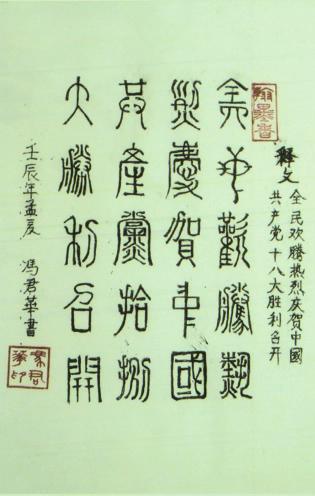 释文
全民欢腾热烈庆贺中國
共产党十八大胜利召开
翰墨香
全民歡騰熱
烈慶賀中國
共產黨拾捌
大勝利召開
壬辰年孟夏 馮君華書
馮君華印